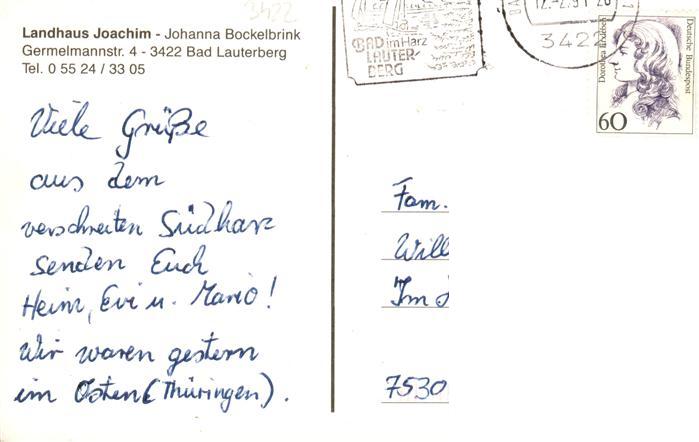 3422
Landhaus Joachim - Johanna Bockelbrink
Germelmannstr. 4 - 3422 Bad Lauterberg
Tel. 0 55 24 / 33 05
Viele Grüße
aus dem
verschneiten Südharz
senden Euch
Heinr, Evi u. Mario!
Wir waren gestern
im Osten (Thüringen).
BAD im Harz
LAUTER-
BERG
12.-2.91-20
3422
Deutsche Bundespost
60
Fam.
Will
Im
7530